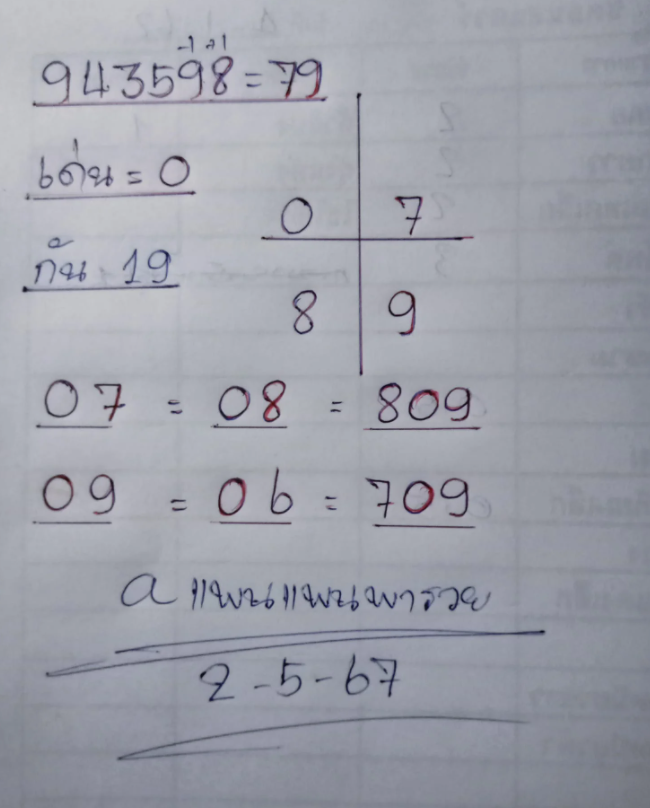 -1 +1
943598 = 79
เด่น = 0
0 7
กัน 19
8 9
07 = 08 = 809
09 = 06 = 709
a แพนแพนพารวย
2-5-67